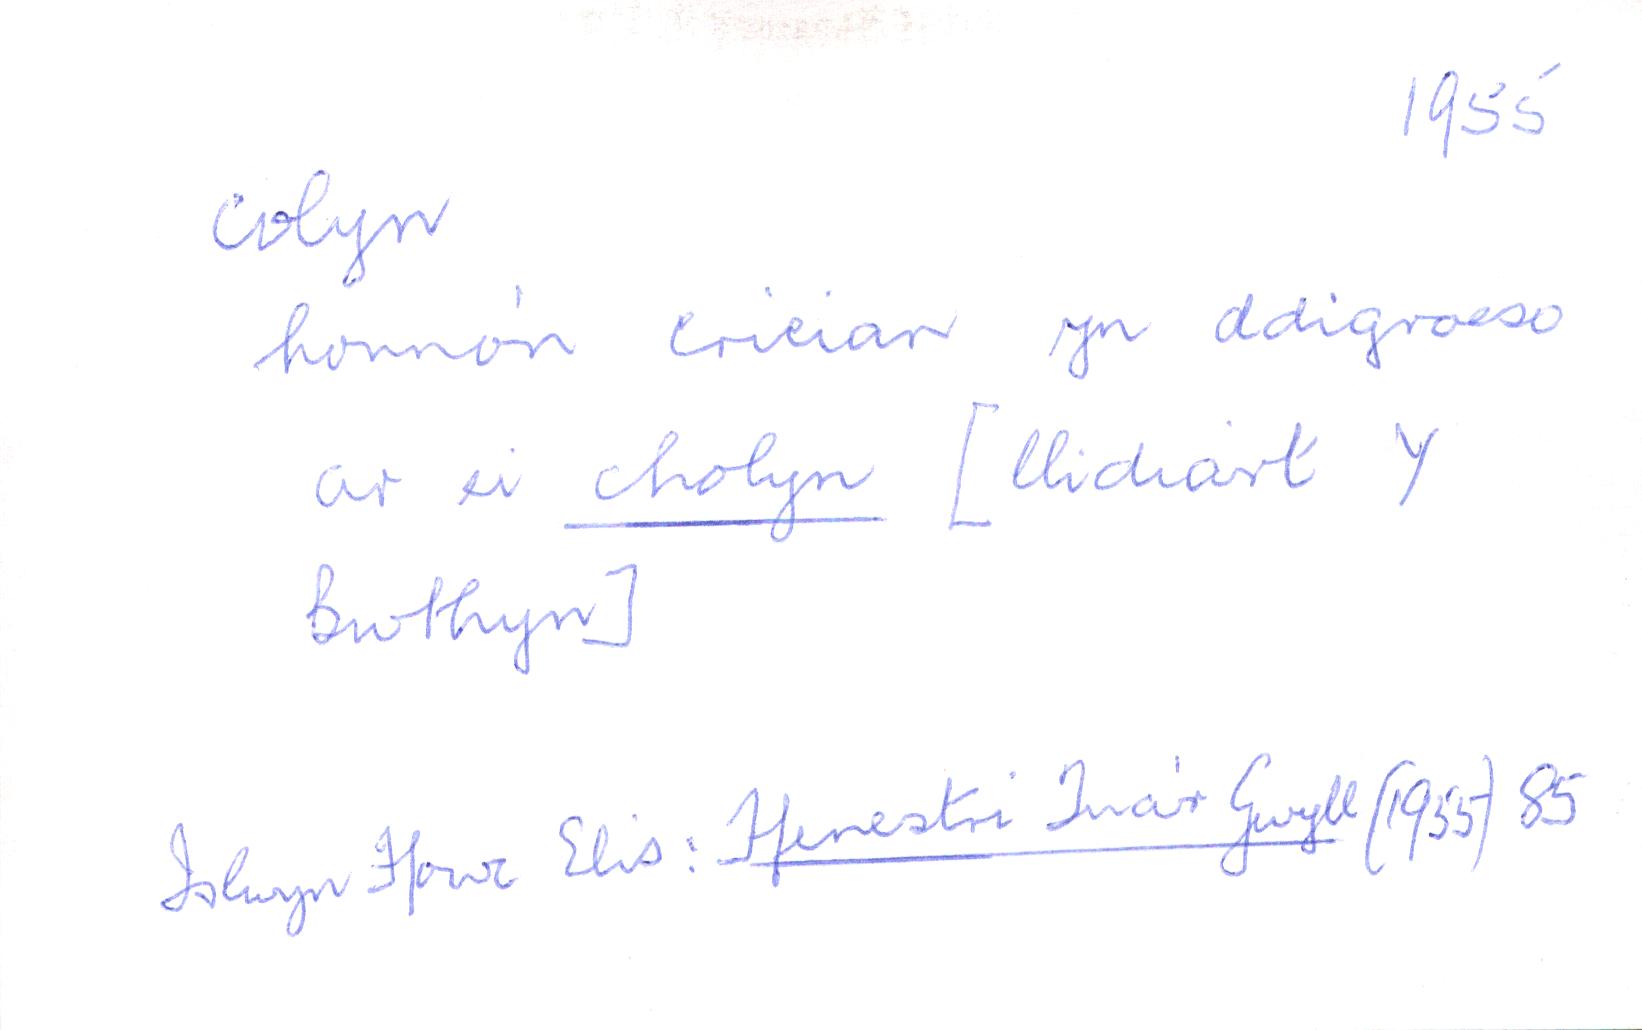 1955
colyn
honno'n crician yn ddigroeso
ar ei cholyn [llidiart y
Bwthyn]
Islwyn Ffowc Elis: Ffenestri Tua'r Gwyll (1955) 85